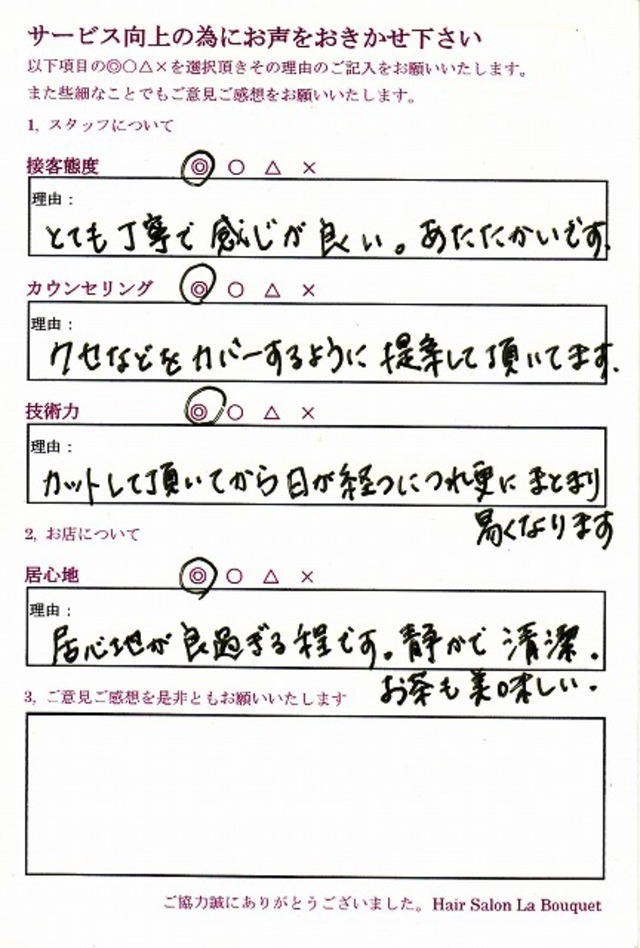 サービス向上の為にお声をおきかせ下さい
以下項目の◎○△×を選択頂きその理由のご記入をお願いいたします。
また些細なことでもご意見ご感想をお願いいたします。
1, スタッフについて
接客態度 ◎ ○ △ ×
理由：
とても丁寧で感じが良い。あたたかいです。
カウンセリング ◎ ○ △ ×
理由：
クセなどをカバーするように提案して頂いてます。
技術力 ◎ ○ △ ×
理由：
カットして頂いてから日が経つにつれ更にまとまり
易くなります
2, お店について
居心地 ◎ ○ △ ×
理由：
居心地が良過ぎる程です。静かで清潔。
お茶も美味しい。
3, ご意見ご感想を是非ともお願いいたします
ご協力誠にありがとうございました。Hair Salon La Bouquet